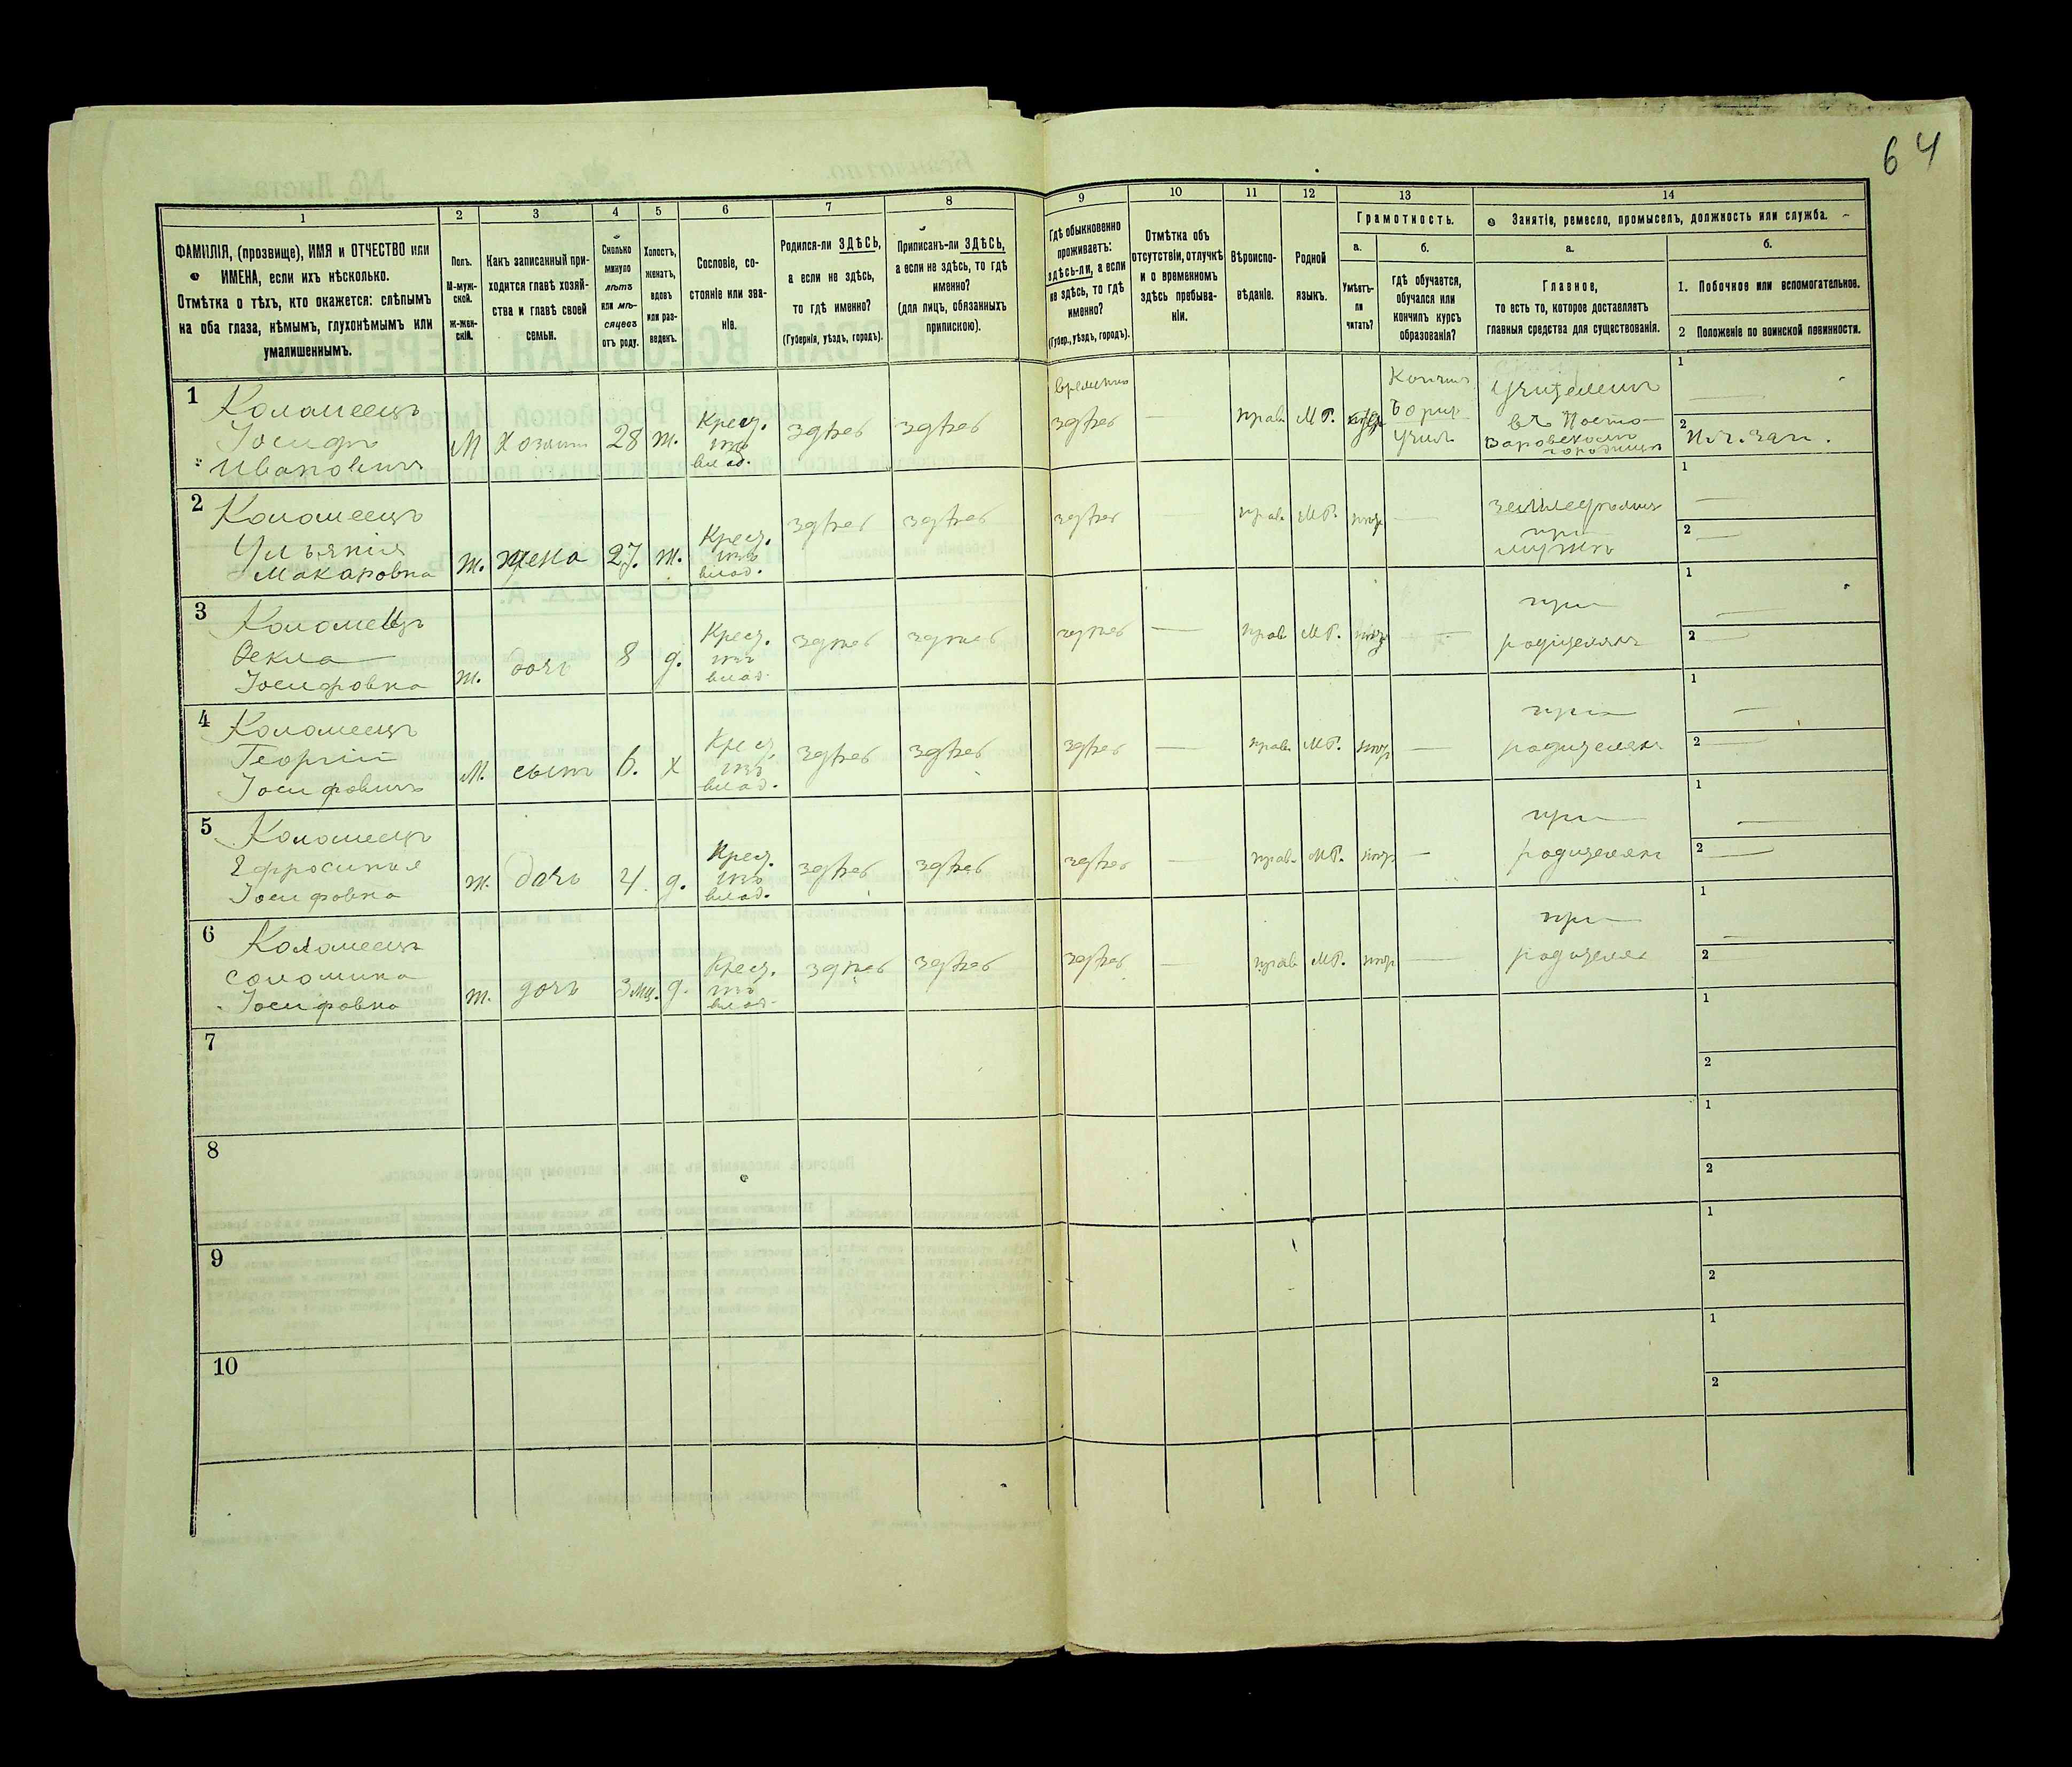 64
1
2
3
4
5
6
7
8
9
10
11
12
13
14
ФАМИЛІЯ, (прозвище), ИМЯ и ОТЧЕСТВО или
ИМЕНА, если ихъ нѣсколько.
Отмѣтка о тѣхъ, кто окажется: слѣпымъ
на оба глаза, нѣмымъ, глухонѣмымъ или
умалишеннымъ.
Полъ.
М-муж-
ской.
Ж-жен-
скій.
Какъ записанный при-
ходится главѣ хозяй-
ства и главѣ своей
семьи.
Сколько
минуло
лѣтъ
или мѣ-
сяцевъ
отъ роду.
Холостъ,
женатъ,
вдовъ
или раз-
веденъ.
Сословіе, со-
стояніе или зва-
ніе.
Родился-ли ЗДѢСЬ,
а если не здѣсь,
то гдѣ именно?
(Губернія, уѣздъ, городъ).
Приписанъ-ли ЗДѢСЬ,
а если не здѣсь, то гдѣ
именно?
(для лицъ, обязанныхъ
припискою).
Гдѣ обыкновенно
проживаетъ:
здѣсь-ли, а если
не здѣсь, то гдѣ
именно?
(Губер., уѣздъ, городъ).
Отмѣтка объ
отсутствіи, отлучкѣ
и о временномъ
здѣсь пребыва-
ніи.
Вѣроиспо-
вѣданіе.
Родной
языкъ.
Грамотность.
а.
Умѣетъ-
ли
читать?
б.
Гдѣ обучается,
обучался или
кончилъ курсъ
образованія?
Занятіе, ремесло, промыселъ, должность или служба.
а.
Главное,
то есть то, которое доставляетъ
главныя средства для существованія.
б.
1. Побочное или вспомогательное.
2 Положеніе по воинской повинности.
1
Коломеецъ
Іосифъ
Ивановичъ
М
хозяин
28
ж.
Крест.
изъ
влад.
здѣсь
здѣсь
временно
здѣсь
—
прав.
МР.
Кончил
Учил
Учителемъ
1
—
2
2
Коломеецъ
Ульянія
Макаровна
ж.
жена
27.
ж.
Крест.
изъ
влад.
здѣсь
здѣсь
здѣсь
прав.
МР.
—
земледѣлия
при
мужѣ
1
—
2
—
3
Коломеецъ
Фекла
Іосифовна
ж.
дочь
8
д.
Крест.
изъ
влад.
здѣсь
здѣсь
здѣсь
—
прав.
МР.
—
при
родителяхъ
1
—
2
—
4
Коломеецъ
Георгій
Іосифовичъ
М.
сынъ
6.
х
Крест.
изъ
влад.
здѣсь
здѣсь
здѣсь
—
прав.
МР.
—
при
родителяхъ
1
—
2
—
5
Коломеецъ
Ефросинья
Іосифовна
ж.
дочь
4.
д.
Крест.
изъ
влад.
здѣсь
здѣсь
здѣсь
—
прав.
МР.
—
при
родителяхъ
1
—
2
—
6
Коломеецъ
Соломина
Іосифовна
ж.
дочь
3 мц.
д.
Крест.
изъ
влад.
здѣсь
здѣсь
здѣсь
—
прав.
МР.
—
при
родителях
1
—
2
7
1
2
8
1
2
9
1
2
10
1
2